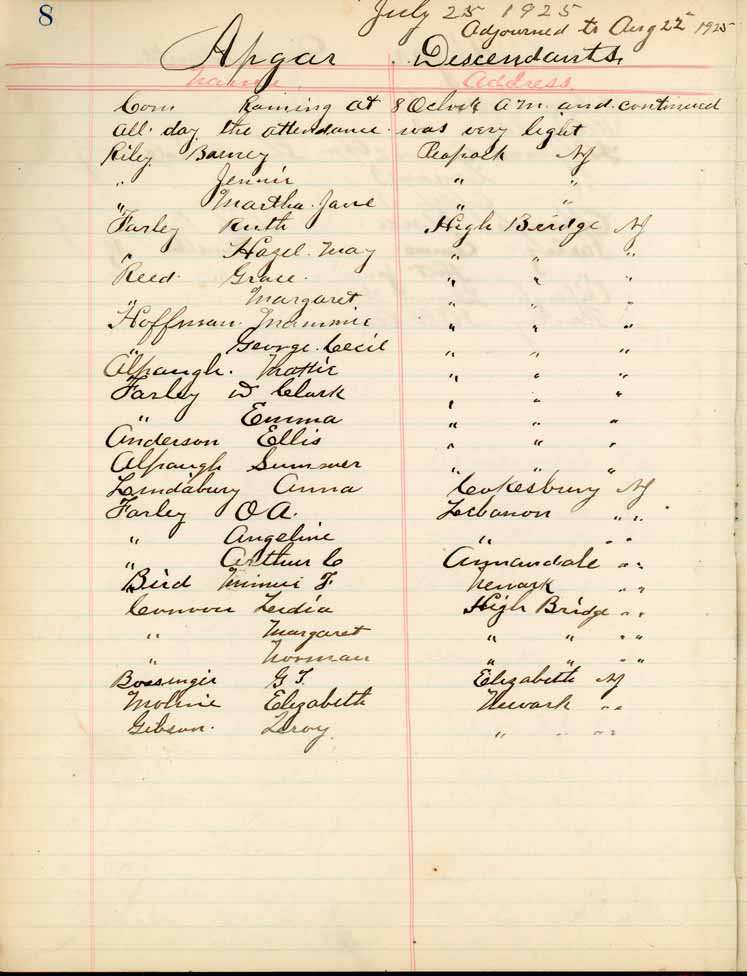 8
July 25 1925
Adjourned to Aug 22 1925
Apgar Descendants
Name. Address.
Com Raining at 8 Oclock A M. and continued
all day the attendance was very light
Riley Barney Peapack NJ
" Jennie " "
" Martha Jane " "
Farley Ruth High Beidge NJ
" Hazel May " " "
Reed Grace " " "
" Margaret " " "
Hoffman Mammie " " "
" George Cecil " " "
Alpaugh. Mattie " " "
Farley W Clark " " "
" Emma " " "
Anderson Ellis " " "
Alpaugh Sumner " " "
Lindabury Anna Cokesbury NJ
Farley O A. Lebanon " "
" Angeline " " "
" Arthur C Annandale " "
Bird Minnie F Newark " "
Connover Lidia High Bridge " "
" Margaret " " " "
" Norman " " " "
Bossinger G F. Elizabeth NJ
Moline Elizabeth Newark " "
Gibson. Leroy " " " "